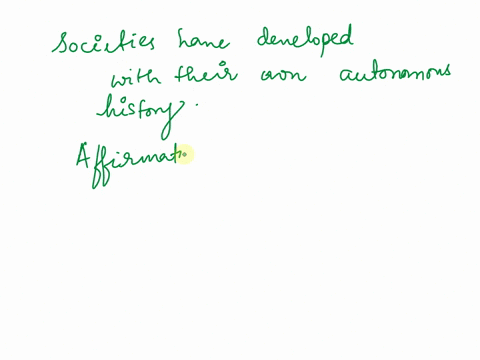 Societies have developed
with their own autonomous
history.
Affirmat